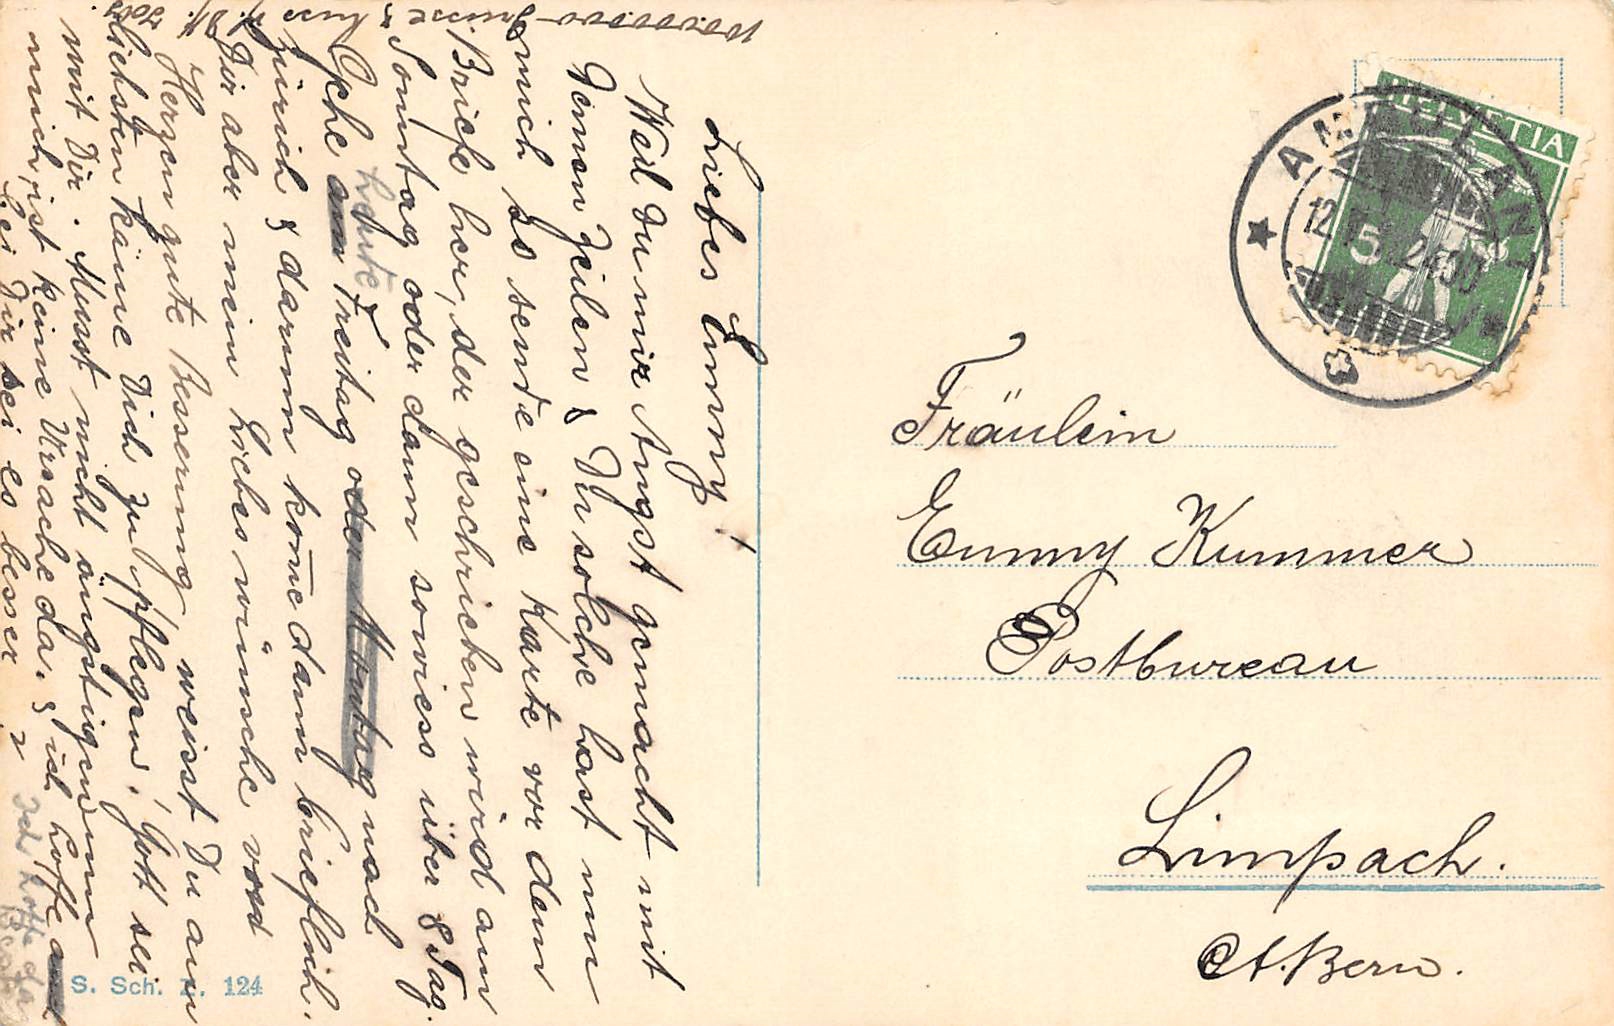 Liebes Emmy!
Weil Du mir Angst gemacht mit
Deinen Zeilen & Du solche hast um
mich so sende eine Karte vor dem
Briefe her, der geschrieben wird am
Sonntag oder dann sowiess über 8 Tag.
Gehe am heute Freitag oder Montag nach
Zürich & darum kome dann brieflich.
Dir aber mein Liebes wünsche von
Herzen gute Besserung weisst Du am
liebsten käme Dich zu pflegen! Gott sei
mit Dir. Musst nicht ängstigen um
mich, ist keine Ursache da, & ich hoffe
bei Dir sei es besser
Grüsse & Kuss
HELVETIA
5
Fräulein
Emmy Kummer
Postbureau
Limpach.
Ct. Bern.
S. Sch. Z. 124